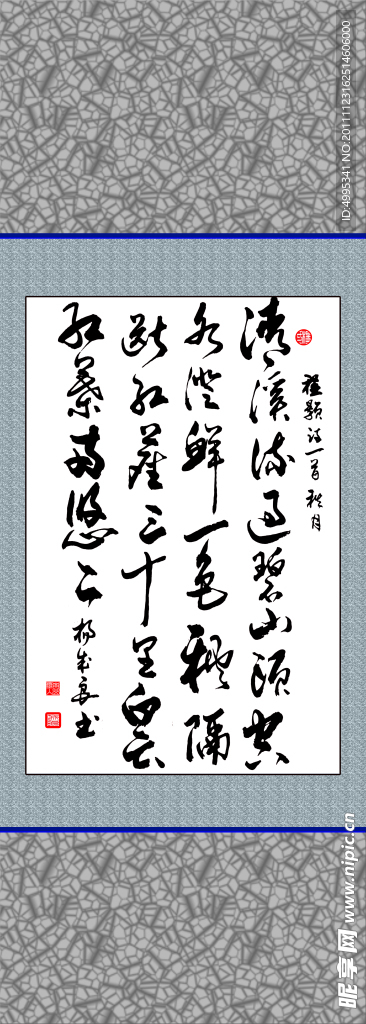 程顥詩一首 秋月
清溪流過碧山頭空
水澄鮮一色秋隔
斷紅塵三十里白雲
紅葉兩悠悠
ID:4995341 NO:20111123162514606000
昵享网 www.nipic.cn